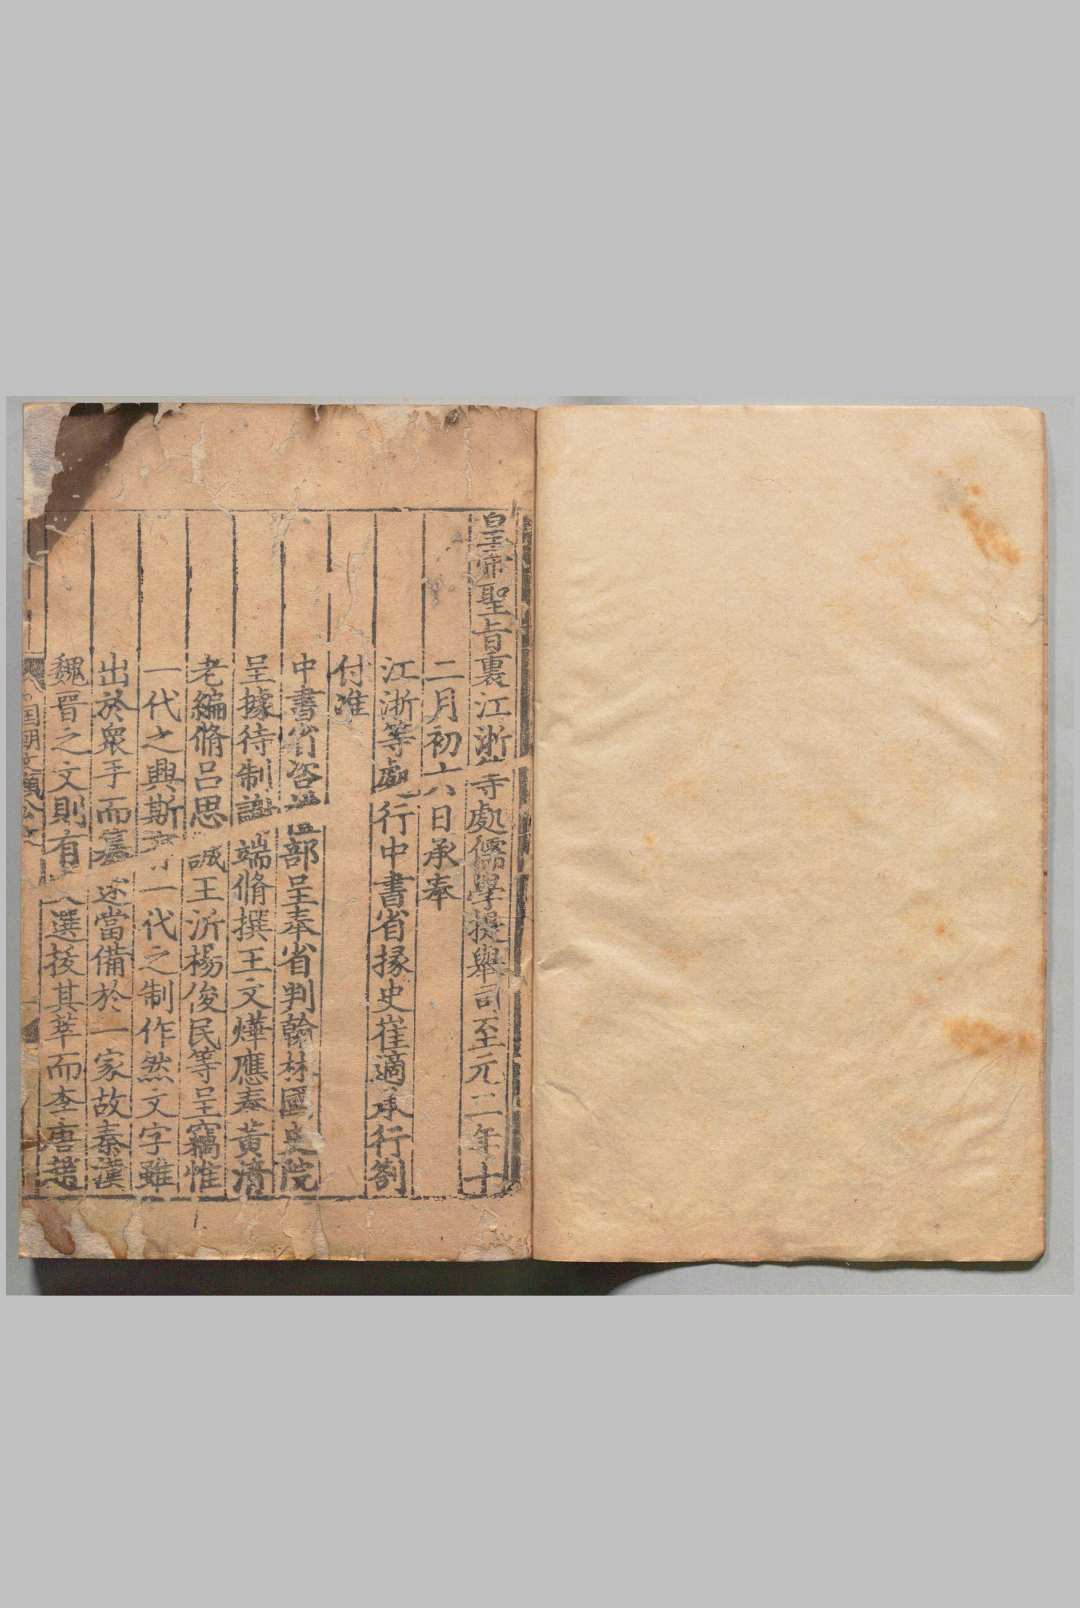 皇帝聖旨裏江浙等處儒學提舉司至元二年十
二月初六日承奉
江浙等處行中書省掾史崔適承行劄
付准
中書省咨禮部呈奉省判翰林國史院
呈據待制謝端脩撰王文燁應奉黃清
老編脩呂思誠王沂楊俊民等呈竊惟
一代之興斯有一代之制作然文字雖
出於衆手而纂述當備於一家故秦漢
魏晋之文則有文選拔其萃而李唐趙
國朝文類公文